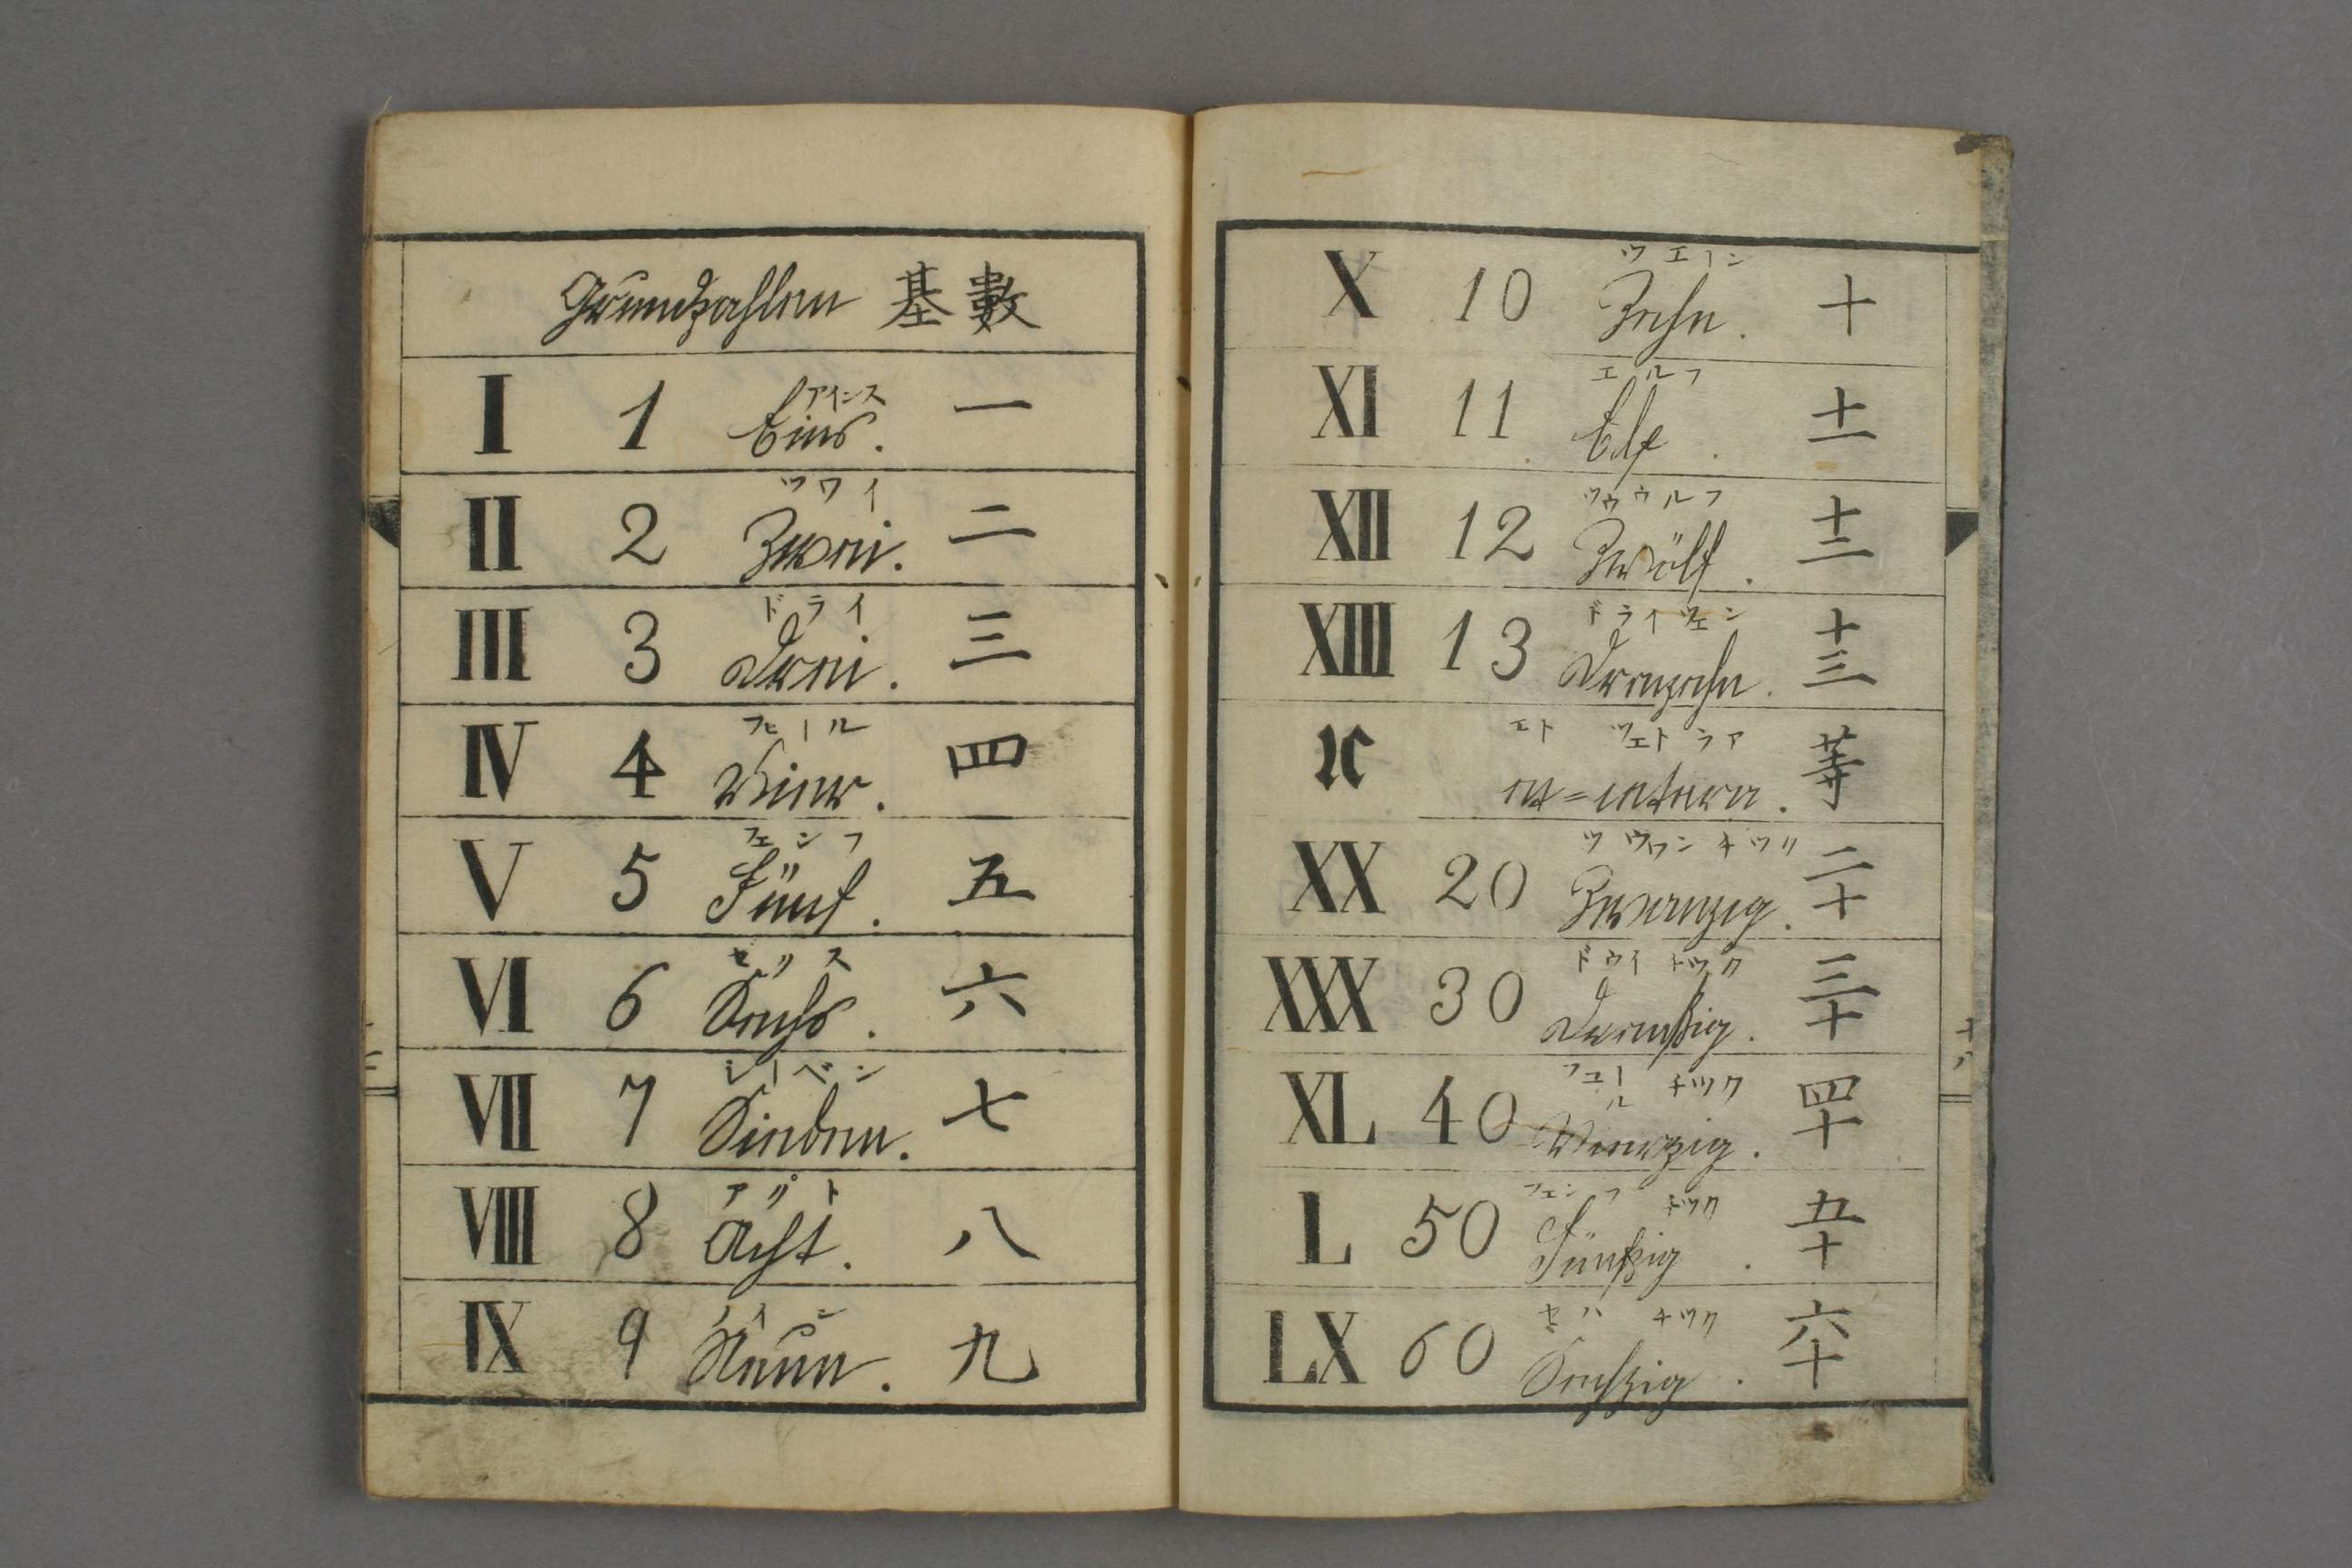 Grundzahlen 基數
アインス
I 1 Eins. 一
ツワイ
II 2 Zwei. 二
ドライ
III 3 Drei. 三
フヒール
IV 4 Vier. 四
フェンフ
V 5 Fünf. 五
VI 6 Sechs. 六
シーベン
VII 7 Sieben. 七
VIII 8 Acht. 八
ノイン
IX 9 Neun. 九
ツエーン
X 10 Zehn. 十
エルフ
XI 11 Elf. 十一
ツウウルフ
XII 12 Zwölf. 十二
ドライツェン
XIII 13 Dreizehn. 十三
エト ツェトラア
et=cetera. 等
XX 20 Zwanzig. 二十
XXX 30 Dreißig. 三十
チツク
XL 40 Vierzig. 四十
フェンフ チツク
L 50 Fünfzig. 五十
セハ チツク
LX 60 Sechzig. 六十